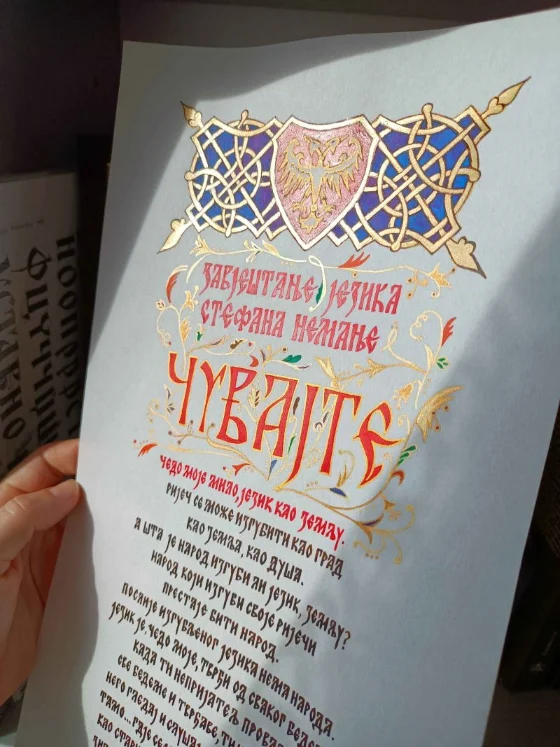 ЗАВЈЕШТАЊЕ ЈЕЗИКА
СТЕФАНА НЕМАЊЕ
ЧУВАЈТЕ
ЧЕДО МОЈЕ МИЛО, ЈЕЗИК КАО ЗЕМЉУ.
РИЈЕЧ СЕ МОЖЕ ИЗГУБИТИ КАО ГРАД
КАО ЗЕМЉА, КАО ДУША.
А ШТА ЈЕ НАРОД ИЗГУБИ ЛИ ЈЕЗИК, ЗЕМЉУ?
НАРОД КОЈИ ИЗГУБИ СВОЈЕ РИЈЕЧИ
ПРЕСТАЈЕ БИТИ НАРОД.
ПОСЛИЈЕ ИЗГУБЉЕНОГ ЈЕЗИКА НЕМА НАРОДА.
ЈЕЗИК ЈЕ, ЧЕДО МОЈЕ, ТВРЂИ ОД СВАКОГ БЕДЕ
КАДА ТИ НЕПРИЈАТЕЉ ПРОВА
СВЕ БЕДЕМЕ И ТВРЂАВЕ, ТИ
НЕГО ГЛЕДАЈ И СЛУШАЈ
ТАМО... ГДЈЕ СЕ
КАО СТАР